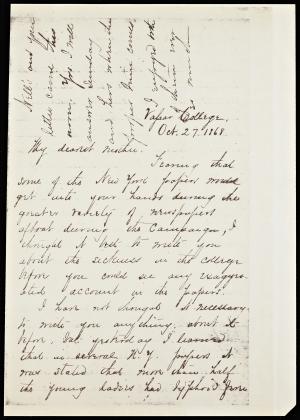 Vassar College.
Oct. 27. 1868.
My dearest mother,
Fearing that
some of the New York papers would
get into your hands during the
greater variety of newspapers
afloat during the Campaign, I
thought it best to write you
about the sickness in the college
before you could see any exagger-
ated account in the papers.
I have not thought it necessary
to write you anything about it
before, but yesterday I learned
that in several N.Y. papers it
was stated that more than half
the young ladies had typhoid fever
Nell's and your
letter came this
noon. Yes I will
answer Sunday
and
papers
I enjoyed
very
much